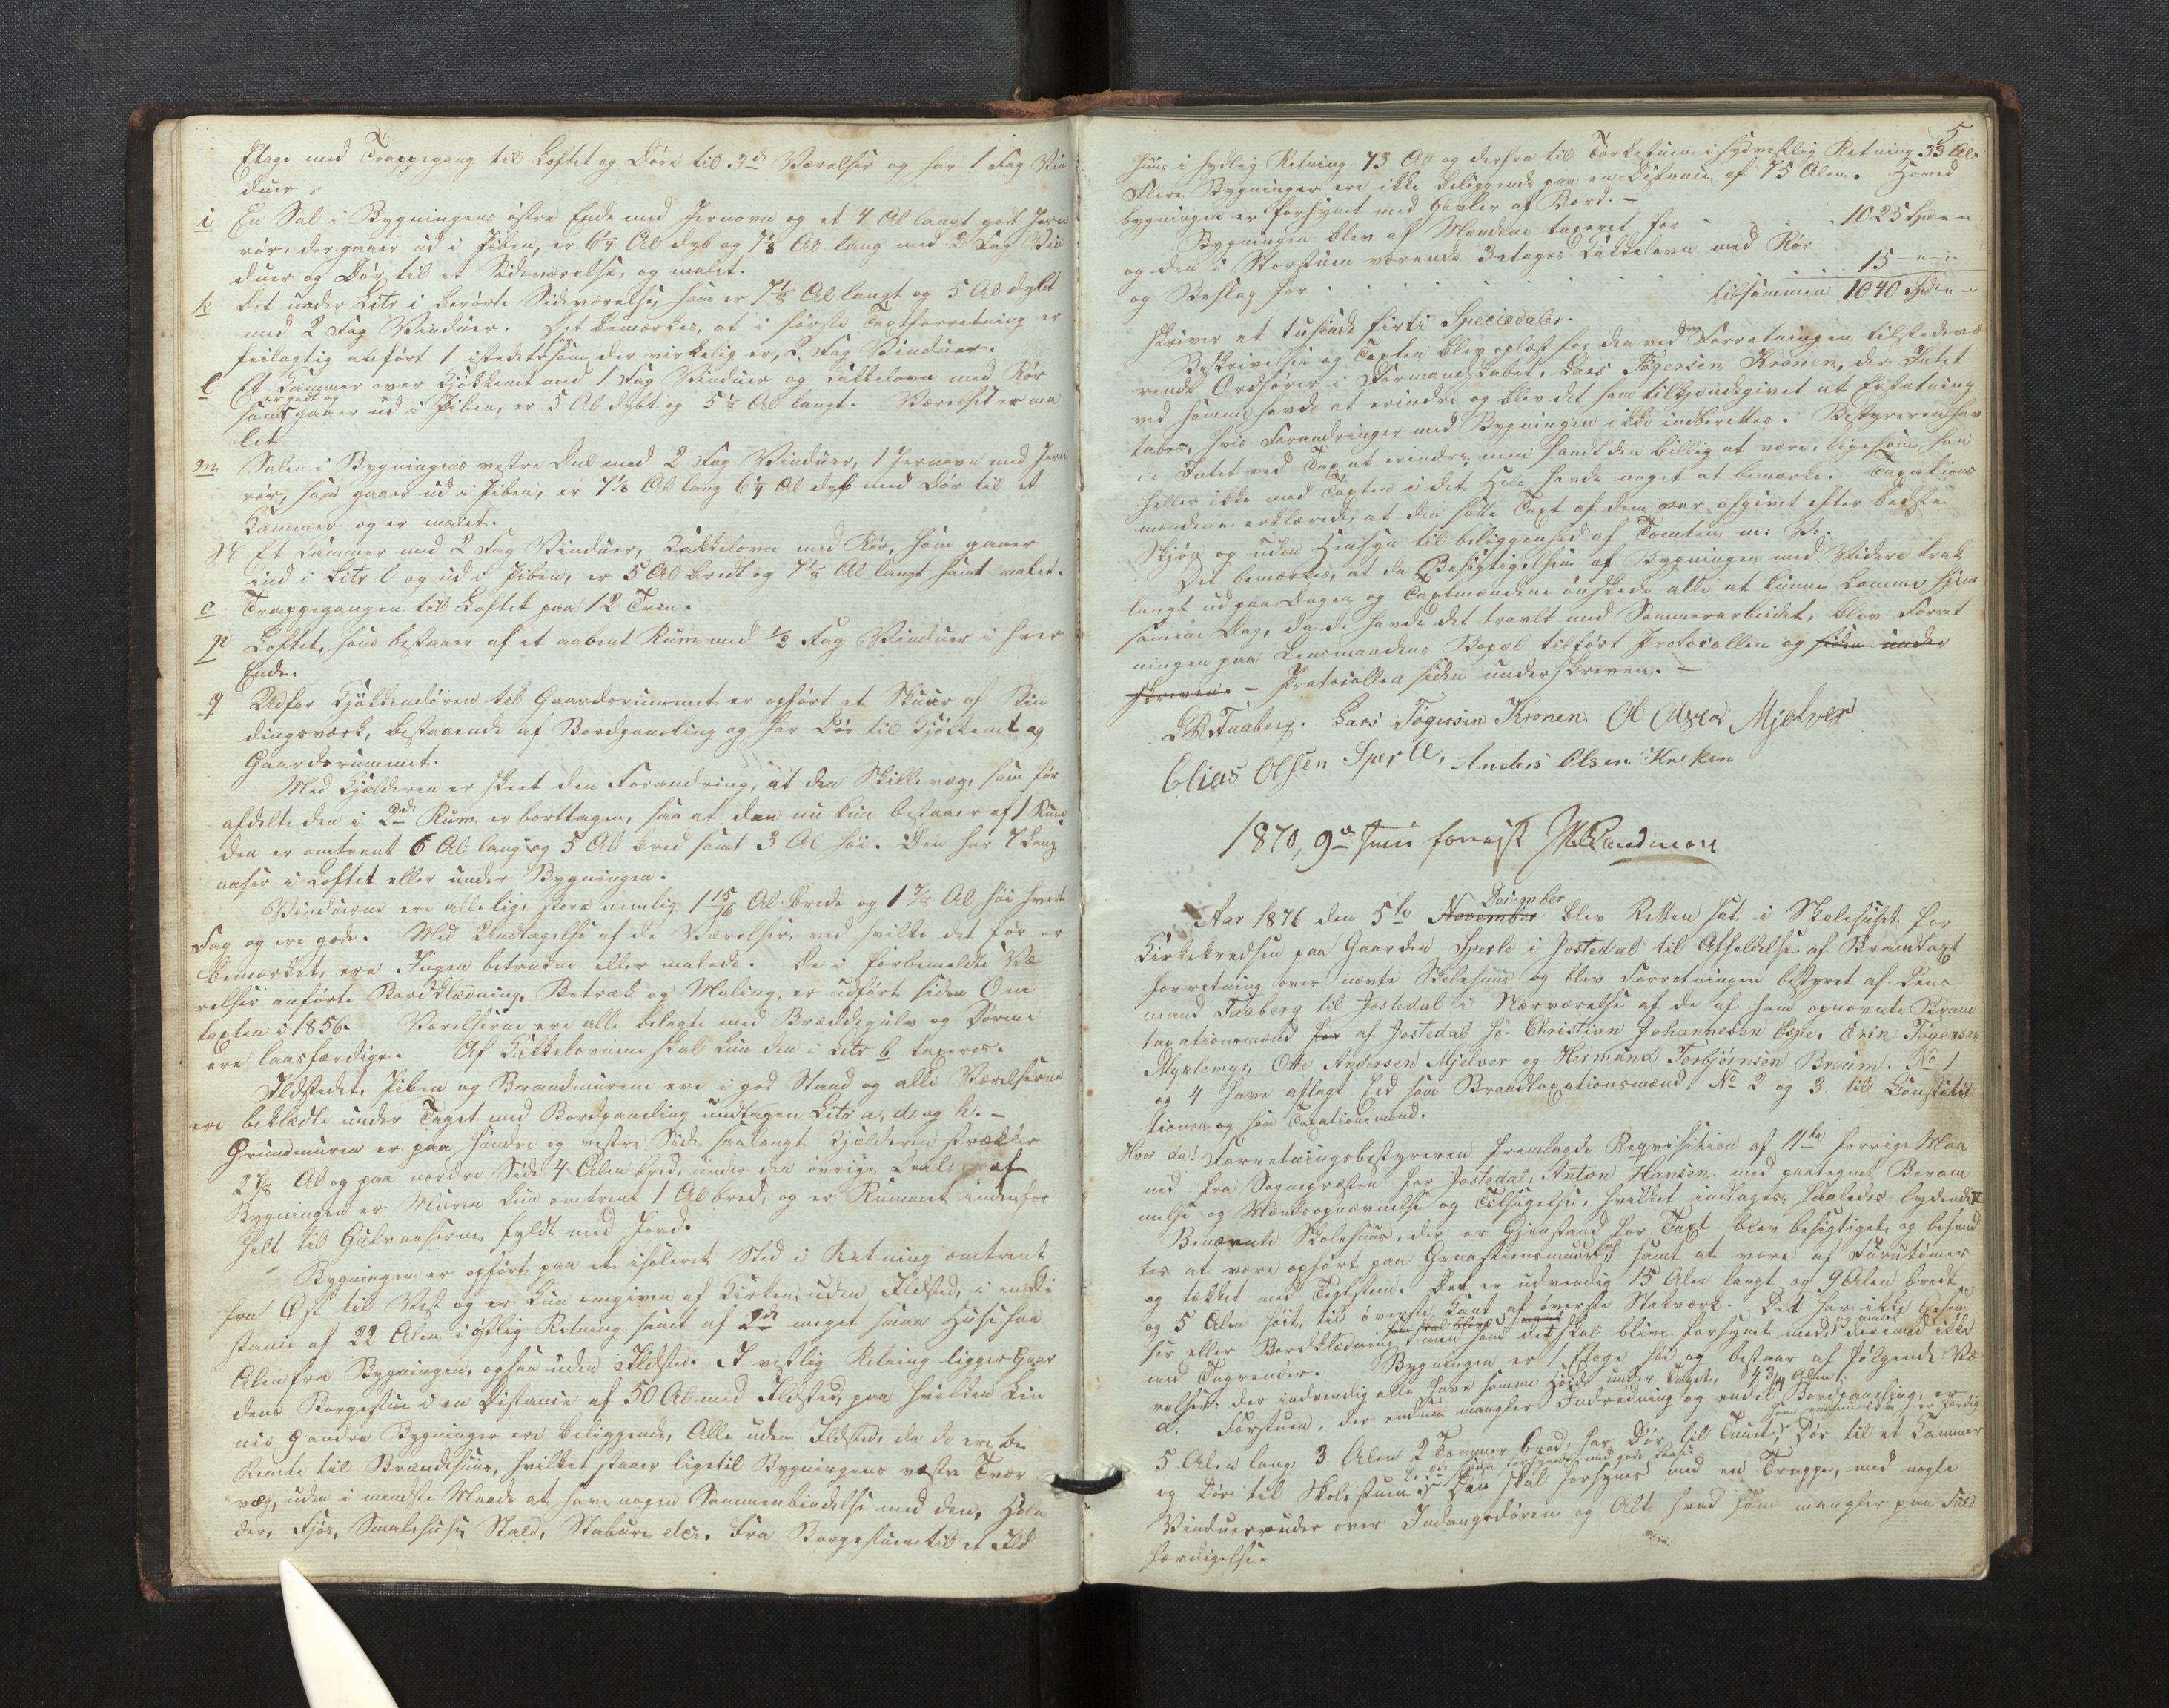 Etage med Trappegang til Loftet og Døre til 3de Værelser og har 1 Fag Vin
duer.
i En Sal i Bygningens østre Ende med Jernovn og et 4 Al langt godt Jern
rør, der gaaer ud i Piben, er 6¼ Al dyb og 7⅛ Al lang med 2 Fag Vin
duer og Dør til et Sideværelse, og malet.
k Det under Litr i berørte Sideværelse som er 7⅛ Al langt og 5 Al dybt
med 2 Fag Vinduer. Det bemærkes, at i første Taxtforretning er
feilagtig anført 1 istedetfor som der virkelig er, 2 Fag Vinduer.
l Et Kammer over Kjøkkenet med 1 Fag Vinduer og Kakkelovn med Rør
som er godt og gaaer ud i Piben, er 5 Al dybt og 5½ Al langt. Værelset er ma
let
m Salen i Bygningens vestre Del med 2 Fag Vinduer, 1 Jernovn med Jern
rør, som gaaer ud i Piben, er 7⅛ Al lang 6¼ Al dyb med Dør til et
Kammer og er malet.
n Et Kammer med 2 Fag Vinduer, Kakkelovn med Rør, som gaaer
ind i Litr l og ud i Piben, er 5 Al bredt og 7⅛ Al langt samt malet.
o Trappegangen til Loftet paa 12 Trin.
p Loftet, som bestaaer af et aabent Rum med ½ Fag Vinduer i hver
Ende.
q Udfor Kjøkkendøren til Gaardsrummet er opført et Skuur af Bin
dingsværk, bestaaende af Bordpaneling og har Dør til Kjøkkenet og
Gaardsrummet.
Med Kjælderen er skeet den Forandring, at den Skillevæg, som før
afdelte den i 2de Rum er borttagen, saa at den nu kun bestaaer af 1 Rum
den er omtrent 6 Al lang og 5 Al bred samt 3 Al høi. Den har 7 Lang
aaser i Loftet eller under Bygningen.
Vinduerne ere alle lige store nemlig 1 15/16 Al brede og 1⅞ Al høi hvert
Fag og ere gode. Med Undtagelse af de Værelser, ved hvilke det før er
bemærket, ere Ingen betrukne eller malede. De i forbemeldte Væ
relser anførte Bordklædning, Betræk og Maling, er udført siden Om
taxten i 1856. Værelserne ere alle belagte med Bræddegulv og Dørene
ere laasfærdige. Af Kakkelovnene skal kun den i Litr b taxeres.
Ildstedet, Piben og Brandmurene ere i god Stand og alle Værelserne
ere beklædte under Taget med Bordpaneling undtagen Litr a, d. og h. –
Grundmuren er paa søndre og vestre Side saalangt Kjælderen strækker
2⅞ Al og paa nordre Side 4 Alen bred, under den øvrige Deel af
Bygningen er Muren kun omtrent 1 Al bred, og er Rummet indenfor
helt til Gulvaaserne fyldt med Jord.
Bygningen er opført paa et isoleret Sted i Retning omtrent
fra Øst til Vest og er kun omgiven af Kirken uden Ildsted, i en Di
stance af 22 Alen i østlig Retning samt af 2de meget smaa Huse
Alen fra Bygningen, ogsaa uden Ildsted. I vestlig Retning ligger Gaar
dens Borgestue i en Distance af 50 Al med Ildsted, paa hvilken Lin
nie 9 andre Bygninger ere beliggende, Alle uden Ildsted, da de ere be
stemte til Brændehuus, hvilket staaer ligetil Bygningens vestre Tvær
væg, uden i mindste Maade at have nogen Sammenbindelse med den, Hølo
der, Fjøs, Smalehuse, Stald, Stabure etc. Fra Borgestuen til et Ild
5
huus i sydlig Retning 73 Al og derfra til Tørkestuen i sydvestlig Retning 33 Al.
Flere Bygninger ere ikke beliggende paa en Distance af 75 Alen. Hoved
bygningen er forsynet med Gavler af Bord. –
Bygningen blev af Mændene taxeret for 1025 Spd „ „
og den i Storstuen værende 3 etages Kakkelovn med Rør
og Beslag for 15 – „ – „ –
tilsammen 1040 Spd „ „
skriver et tusinde firti Speciedaler.
Beskrivelsen og Taxten blev oplæst for den ved Forretningen tilstedevæ
rende Ordfører i Formandskabet, Lars Tøgersen Kronen, der Intet
ved samme havde at erindre og blev det ham tilkjendegivet at Erstatning
tabes, hvis Forandringer med Bygningen ikke indberettes. Bestyreren hav
de Intet ved Taxt at erindre, men fandt den billig at være, ligesom han
heller ikke mod Taxten i det Hele havde noget at bemærke. Taxations
mændene erklærede, at den satte Taxt af dem var afgivet efter bedste
Skjøn og uden Hensyn til beliggenhed af Tomten m: V.
Det bemærkes, at da Besigtigelsen af Bygningen med Videre trak
langt ud paa Dagen og Taxtmændene ønskede alle at kunne komme hjem
samme Dag, da de havde det travlt med Sommerarbeidet, blev Forret
ningen paa Lensmandens Bopæl tilført Protocollen og siden under
skreven. – Protocollen siden underskreven. –
Faaberg. Lars Tøgersen Kronen. Mjelver
Elias Olsen Sperle, Anders Olsen Kreken
1870, 9de Juni forevist
Aar 1876 den 5te November December blev Retten sat i Skolehuset for
Kirkekredsen paa Gaarden Sperle i Jostedal til Afholdelse af Brandtaxt
forretning over nævnte Skolehuus og blev Forretningen bestyret af Lens
mand Faaberg til Jostedal i Nærværelse af de af ham opnævnte Brand
taxationsmænd for af Jostedal So: Christian Johannesen Espe, Erik Tøgersen
Myklemyr, Otte Andersen Mjelver og Hermund Torbjørnsen Breum. No 1
og 4 have aflagt Eed som Brandtaxationsmænd, No 2 og 3 till Constitu
tionen og som Taxationsmænd.
Hvor da! Forretningsbestyreren fremlagde Reqvisition af 11te forrige Maa
ned fra Sognepræsten for Jostedal, Anton Hansen med paategnet Beram
melse og Mændsopnævnelse og Tilsigelse, hvilket indtages, saaledes lydende
Benævnte Skolehuus, der er Gjenstand for Taxt blev besigtiget, og befand
tes at være opført paa Graasteensmuur samt at være af Furutømer
og tækket med Teglsteen. Det er udvendig 15 Alen langt og 9 Alen bredt
og 5 Alen høit til øverste Kant af øverste Stokværk. Det har ikke
eller Bordklædning men som det skal blive forsynet med, og malet derimod ikke
med Tagrender. Bygningen er 1 Etage høi og bestaar af følgende Væ
relser: der indvendig alle have samme Høide under Taget, 4¾ Alen:
a. Forstuen, der endnu mangler Indredning og endel Bordpaneling, er som endnu ikke er færdig
5 Alen lang 3 Alen 2 Tommer bred, har Dør til Tunet, Dør til et Kammer
og Dør til Skolestuen. Den skal forsynes med en Trappe, med nogle
Vinduesruder over Indgangsdøren og Alt hvad som mangler paa Fuld
færdigelse.